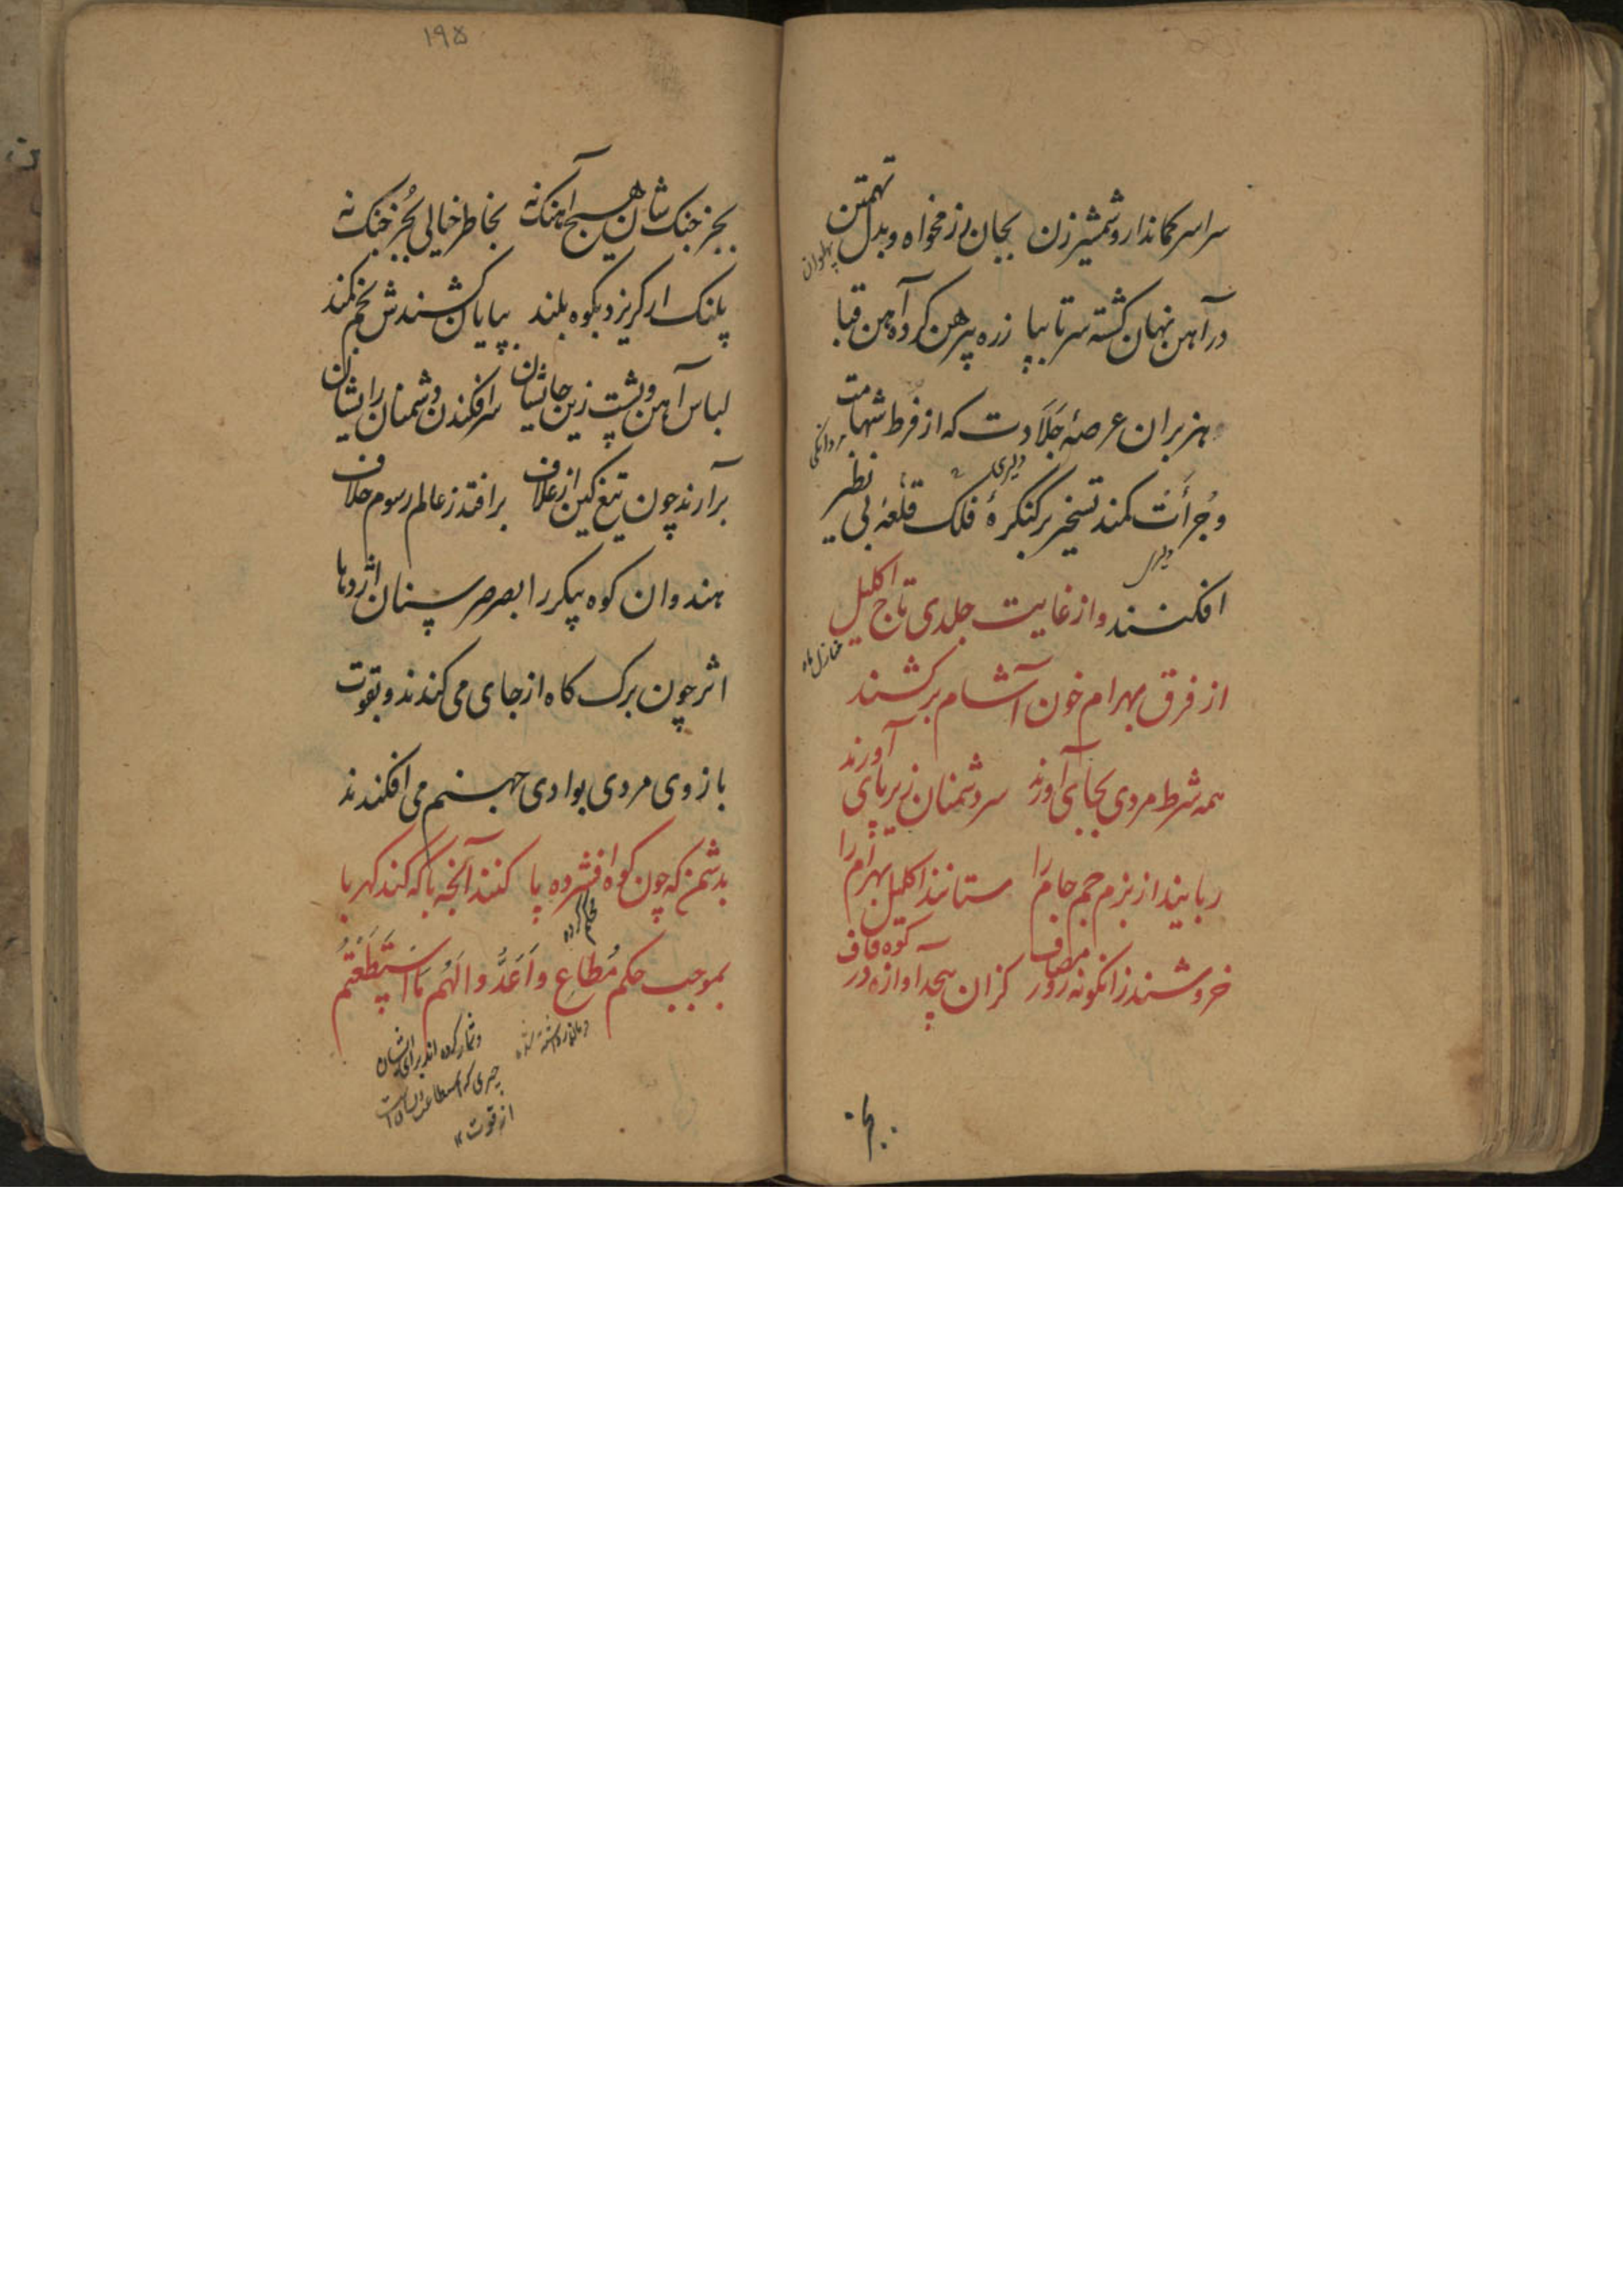 سراسر کماندار و شمشیرزن بجان رزمخواه و بدل تهمتن
پهلوان
در آهن نهان کشته سر تا بپا زره پیرهن کرده آهن قبا
هزبران عرصهٔ جلادت که از فرط شهامت
مردانکی
وجرأت کمند تسخیر بر کنکرهٔ فلک قلعهٔ بی نظیر
دلیری
افکنند و از غایت جلدی تاج اکلیل
منازل ماه
از فرق بهرام خون آشام برکشند
همه شرط مردی بجای آورند سر دشمنان زیر پای آورند
ربایند از بزم جم جام را ستانند اکلیل بهرام را
خروشند زانکونه روز مصاف کزان پیچد آوازه در کوه قاف
بجز
۱۹۵
بجز جنک شان هیچ آهنک نه بخاطر خیالی بجز جنک نه
پلنک ار کریزد بکوه بلند بپایان کشندش بخم کمند
لباس آهن و پشت زین جایشان سرافکندن دشمنان رایشان
برآرند چون تیغ کین از غلاف برافتد ز عالم رسوم خلاف
هندوان کوه پیکر را بصرصر سنان اژدها
اثر چون برک کاه از جای می کندند و بقوت
بازوی مردی بوادی جهنم می افکندند
بدشمن که چون کوه افشرده پا کنند آنچه با که کند کهربا
محکم کرده
بموجب حکم مُطاعِ وَاَعَدُّوا لَهُم مَا اسْتَطَعْتُم
فرمانبرداشته شده
و تیار کرده اند برای ایشان
چیزی که استطاعت
از قوت ۱۲